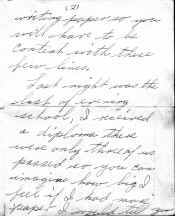 (2)
writing paper so you
will have to be
content with these
few lines.
Last night was the
last of evening
school, I received
a diploma there
were only three of us
passed so you can
imagine how big I
feel if I had more
paper I would